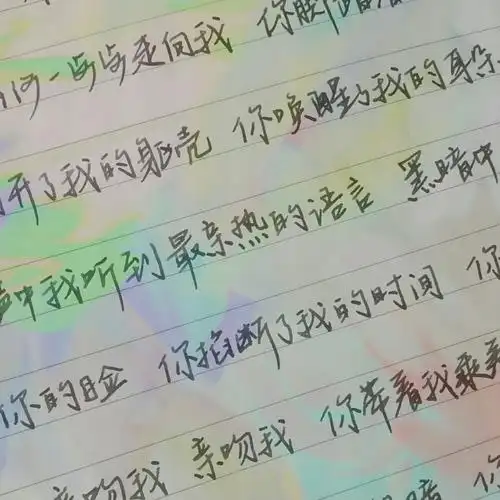 何一步步走向我 你脚踏着
开了我的躯壳 你唤醒了我的耳朵
声中我听到最亲热的语言 黑暗中
你的脸 你掐断了我的时间 你
亲吻我 亲吻我 你牵着我乘着
暗 你